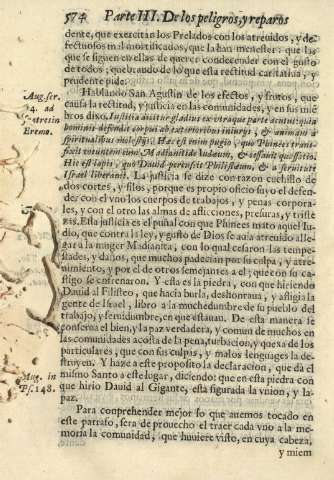 574 Parte III. De los peligros, y reparos
dente, que exercitan los Prelados con los atreuidos, y de-
fectuosos mal mortificados, que la han menester: que las
que se siguen en ellas de querer condecender con el gusto
de todos; quebrando de lo que esta rectitud caritatiua, y
prudente pide.
Aug. ser.
4. ad
fratres in
Eremo.
Hablando San Agustin de los efectos, y frutos, que
causa la rectitud, y justicia en las comunidades, y en sus miē
bros dixo. Iustitia dicitur gladius ex vtraque parte acutus: quia
hominis defendit corpus ab exterioribus iniurijs, & animam a
spiritualibus molestijs. Hac est enim pugio, quo Phinees trans-
Hic est lapis, quo Dauid percussit Philistæum, & a seruitute
Israel liberauit. La justicia se dize con razon cuchillo de
dos cortes, y filos, porque es propio oficio suyo el defen-
der con el vno los cuerpos de trabajos, y penas corpora-
les, y con el otro las almas de aflicciones, presuras, y triste
zas. Esta justicia es el puñal con que Phinees mato aquel Iu-
dio, que contra la ley, y gusto de Dios se auia atreuido alle-
gar a la muger Madianita, con lo qual cesaron las tempes-
tades, y daños, que muchos padecian por su culpa, y atre-
uimiento, y por el de otros semejantes a el; que con su ca-
stigo se enfrenaron. Y esta es la piedra, con que hiriendo
Dauid al Filisteo, que hazia burla, deshonraua, y afligia a la
gente de Israel, libro a la muchedumbre de su pueblo del
trabajo, y seruidumbre, en que estauan. De esta manera se
conserua el bien, y la paz verdadera, y comun de muchos en
las comunidades acosta de la pena, turbacion, y quexa de los
particulares, que con sus culpas, y malos lenguages la des-
Aug. in
Ps. 148.
truyen. Y haze a este proposito la declaracion, que da el
mismo Santo a este lugar, diciendo: que en esta piedra con
que hirio Dauid al Gigante, està figurada la vnion, y la
paz.
Para comprehender mejor lo que auemos tocado en
este parrafo, sera de prouecho el traer cada vno a la me-
moria la comunidad, que huuiere visto, en cuya cabeza,
y miem